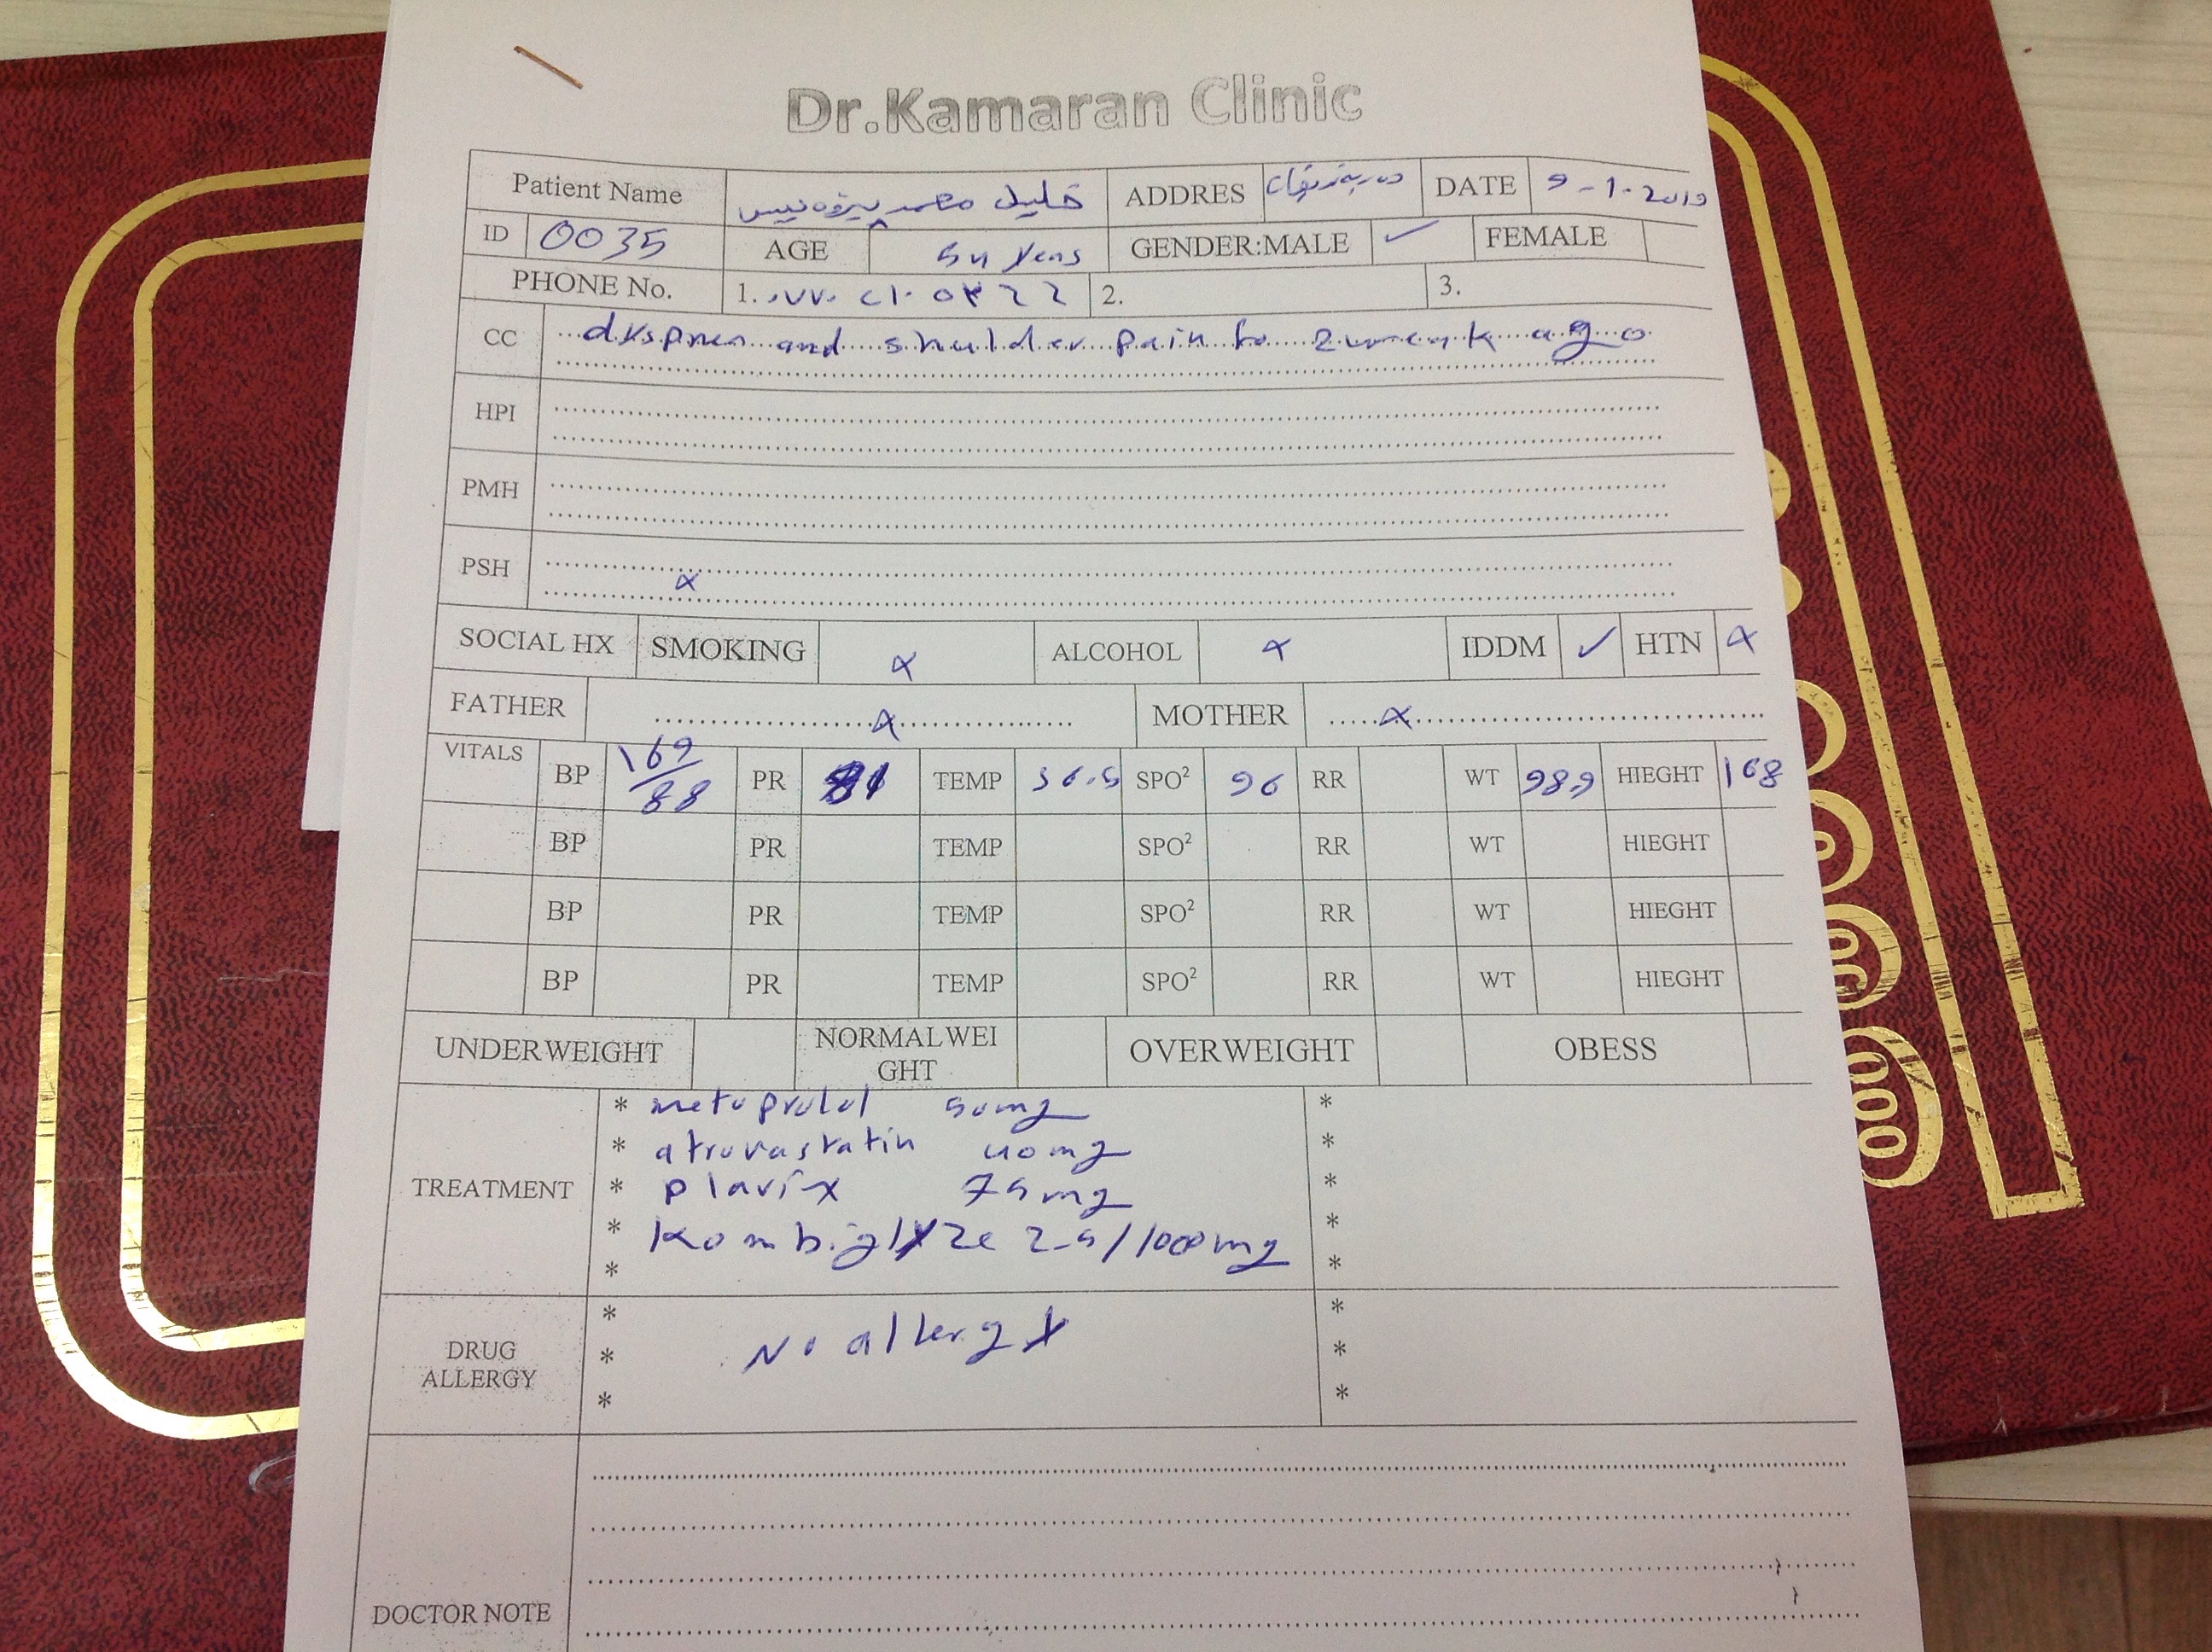 Dr.Kamaran Clinic
Patient Name خليل محمد ADDRES DATE 9-1-2019
ID 0035 AGE 54 Years GENDER:MALE ✓ FEMALE
PHONE No. 1. 2. 3.
CC dyspnea and shulder pain for 2 week ago
HPI
PMH
PSH x
SOCIAL HX SMOKING x ALCOHOL x IDDM ✓ HTN x
FATHER x MOTHER x
VITALS BP 169/88 PR 81 TEMP 36.5 SPO² 96 RR WT 98.9 HIEGHT 168
BP PR TEMP SPO² RR WT HIEGHT
BP PR TEMP SPO² RR WT HIEGHT
BP PR TEMP SPO² RR WT HIEGHT
UNDERWEIGHT NORMALWEI OVERWEIGHT OBESS
GHT
* metoprolol 50mg *
* atrovastatin 40mg *
TREATMENT * plavix 75mg *
* Kombiglyze 2.5/1000mg *
* *
* *
DRUG * No allergy *
ALLERGY
* *
DOCTOR NOTE